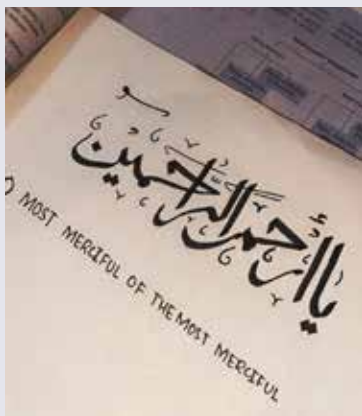 يا ارحم الراحمين
O MOST MERCIFUL OF THE MOST MERCIFUL